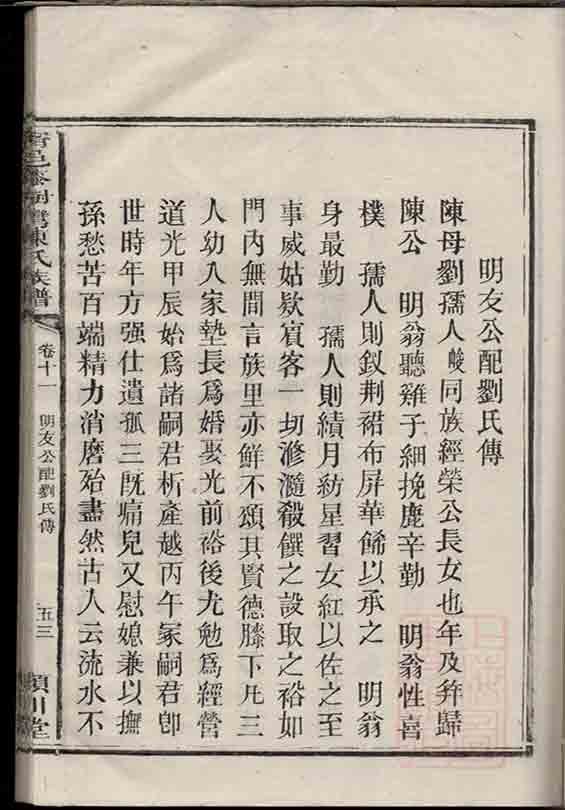 明友公配劉氏傳
陳母劉孺人㕙同族經榮公長女也年及笄歸
陳公 明翁聽雞子細挽鹿辛勤 明翁性喜
樸 孺人則釵荆裙布屏華餙以承之 明翁
身最勤 孺人則績月紡星習女紅以佐之至
事威姑欵賓客一切滫瀡殽饌之設取之裕如
門內無間言族里亦鮮不頌其賢德膝下凡三
人幼入家塾長爲婚娶光前裕後尤勉爲經營
道光甲辰始爲諸嗣君析產越丙午冢嗣君卽
世時年方强仕遺孤三旣痛兒又慰媳兼以撫
孫愁苦百端精力消磨殆盡然古人云流水不
陳氏族譜
卷十一
明友公配劉氏傳
五三
潁川堂